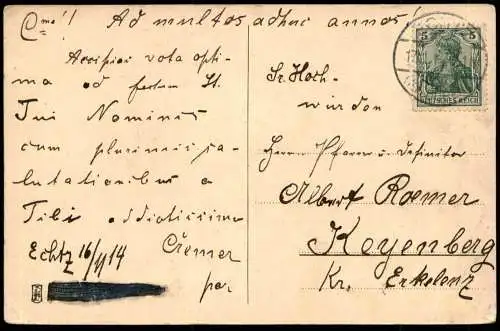 Cme!! Ad multos adhuc annos!
Accipias vota opti-
ma ad festum St.
Tui Nominis
cum plurimis sa-
lutationibus a
Tibi addictissimo
Cremer
par.
Echtz 16/11 14
5
DEUTSCHES REICH
Sr. Hoch-
würden
Herrn Pfarrer u. Definitor
Albert Roemer
Keyenberg
Kr. Erkelenz